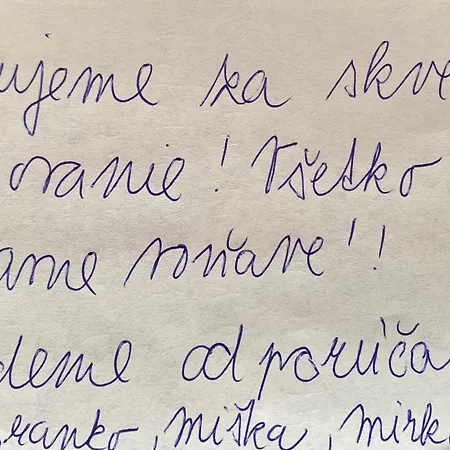 ujeme za skve
ovanie! Všetko
ame voňave!!
deme odporúča
ranko, miška, mirk